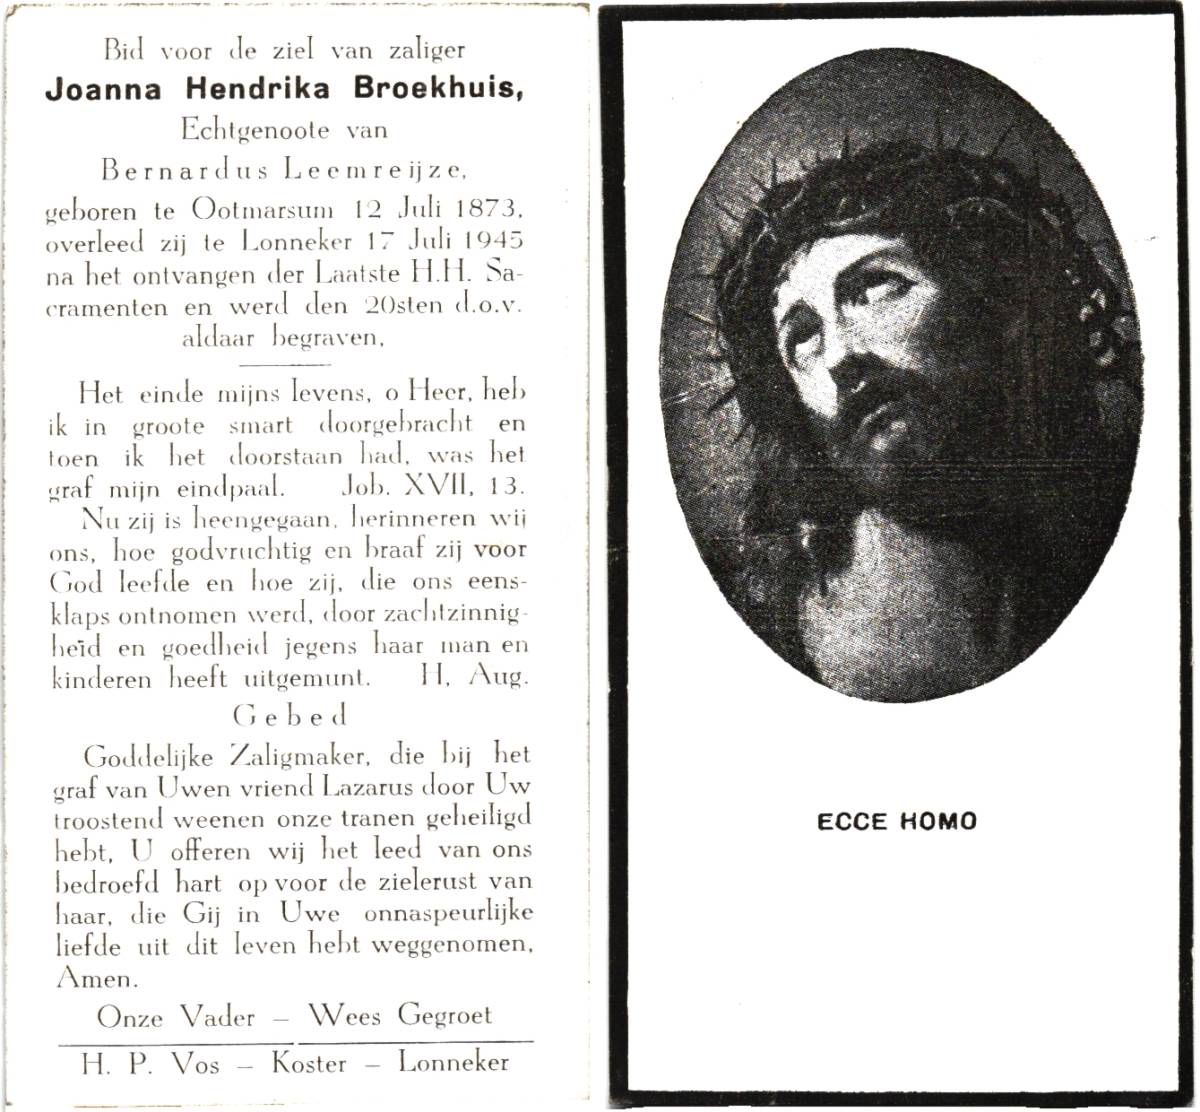 Bid voor de ziel van zaliger
Joanna Hendrika Broekhuis,
Echtgenoote van
Bernardus Leemreijze,
geboren te Ootmarsum 12 Juli 1873,
overleed zij te Lonneker 17 Juli 1945
na het ontvangen der Laatste H.H. Sa-
cramenten en werd den 20sten d.o.v.
aldaar begraven,
Het einde mijns levens, o Heer, heb
ik in groote smart doorgebracht en
toen ik het doorstaan had, was het
graf mijn eindpaal. Job. XVII, 13.
Nu zij is heengegaan, herinneren wij
ons, hoe godvruchtig en braaf zij voor
God leefde en hoe zij, die ons eens-
klaps ontnomen werd, door zachtzinnig-
heid en goedheid jegens haar man en
kinderen heeft uitgemunt. H, Aug.
Gebed
Goddelijke Zaligmaker, die bij het
graf van Uwen vriend Lazarus door Uw
troostend weenen onze tranen geheiligd
hebt, U offeren wij het leed van ons
bedroefd hart op voor de zielerust van
haar, die Gij in Uwe onnaspeurlijke
liefde uit dit leven hebt weggenomen,
Amen.
Onze Vader – Wees Gegroet
H. P. Vos – Koster – Lonneker
ECCE HOMO